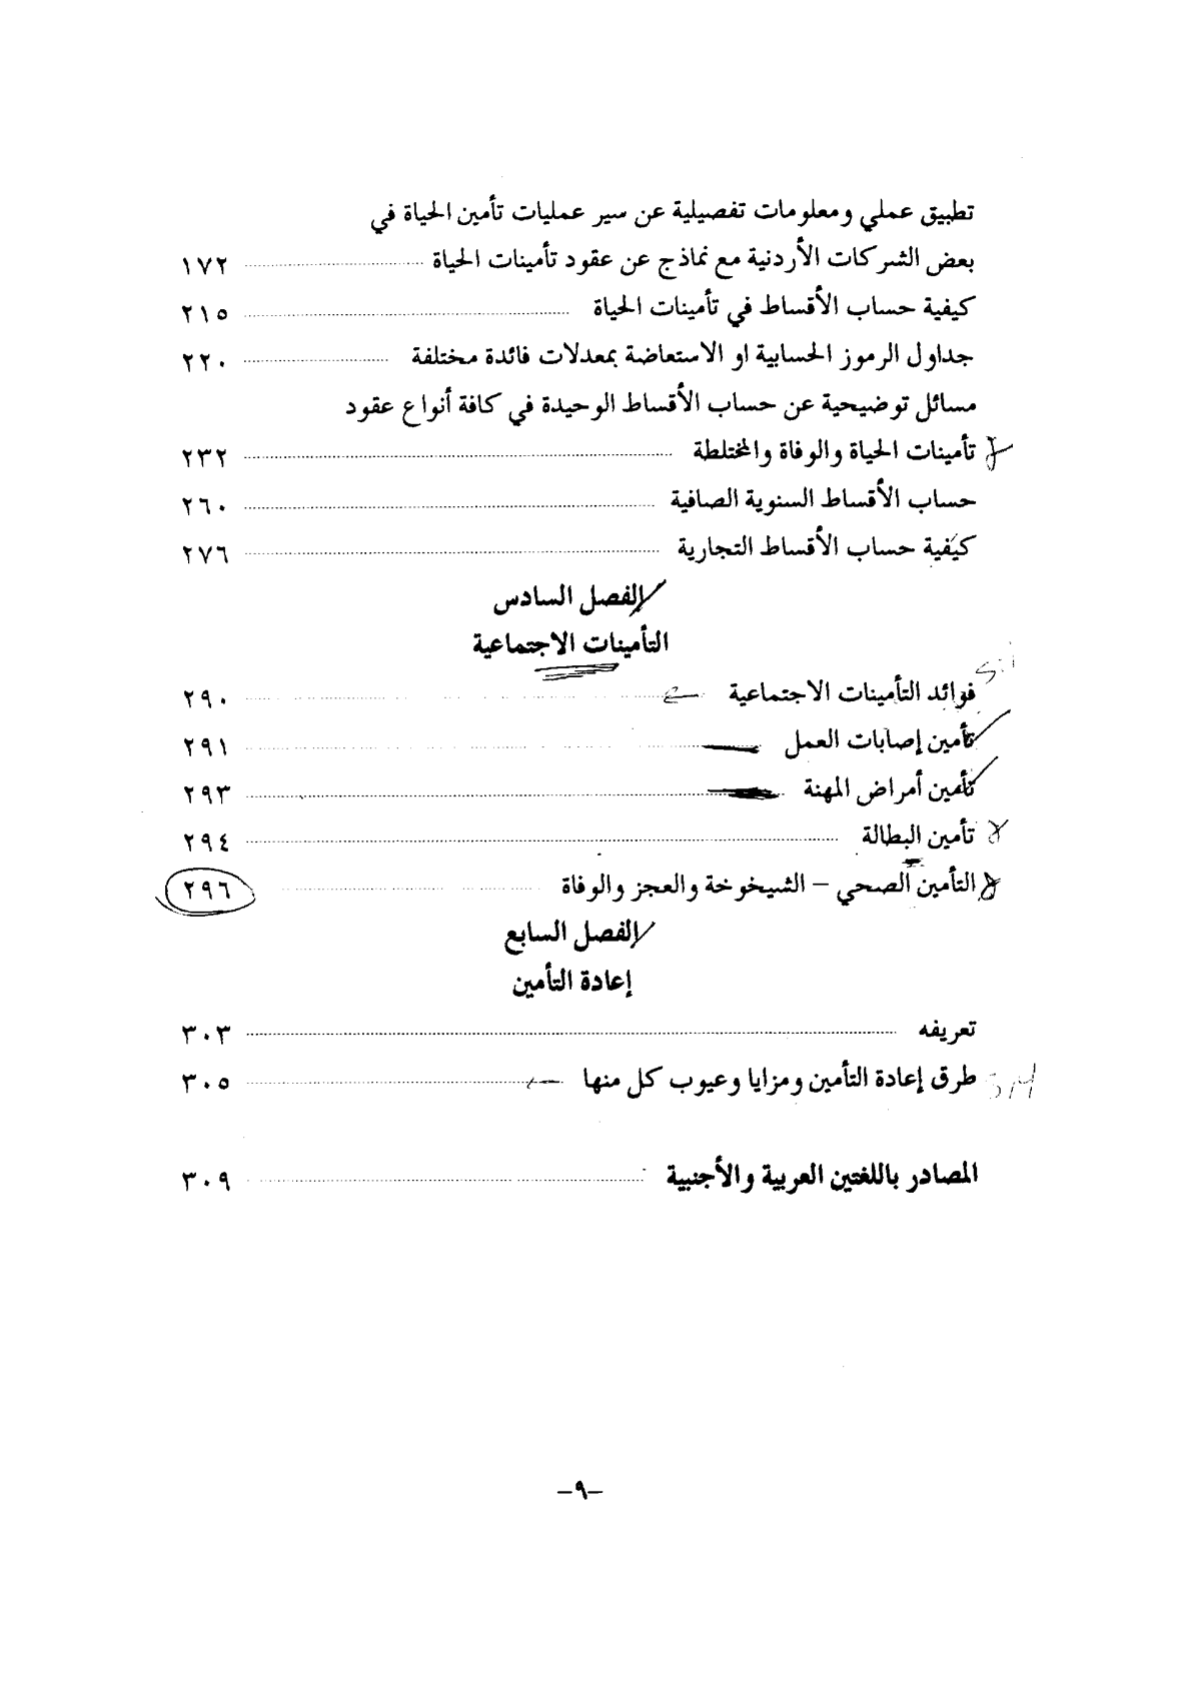 تطبيق عملي ومعلومات تفصيلية عن سير عمليات تأمين الحياة في
بعض الشركات الأردنية مع نماذج عن عقود تأمينات الحياة ١٧٢
كيفية حساب الأقساط في تأمينات الحياة ٢١٥
جداول الرموز الحسابية او الاستعاضة بمعدلات فائدة مختلفة ٢٢٠
مسائل توضيحية عن حساب الأقساط الوحيدة في كافة أنواع عقود
تأمينات الحياة والوفاة والمختلطة ٢٣٢
حساب الأقساط السنوية الصافية ٢٦٠
كيفية حساب الأقساط التجارية ٢٧٦
الفصل السادس
التأمينات الاجتماعية
فوائد التأمينات الاجتماعية ٢٩٠
تأمين إصابات العمل ٢٩١
تأمين أمراض المهنة ٢٩٣
تأمين البطالة ٢٩٤
التأمين الصحي – الشيخوخة والعجز والوفاة ٢٩٦
الفصل السابع
إعادة التأمين
تعريفه ٣٠٣
طرق إعادة التأمين ومزايا وعيوب كل منها ٣٠٥
المصادر باللغتين العربية والأجنبية ٣٠٩
–٩–